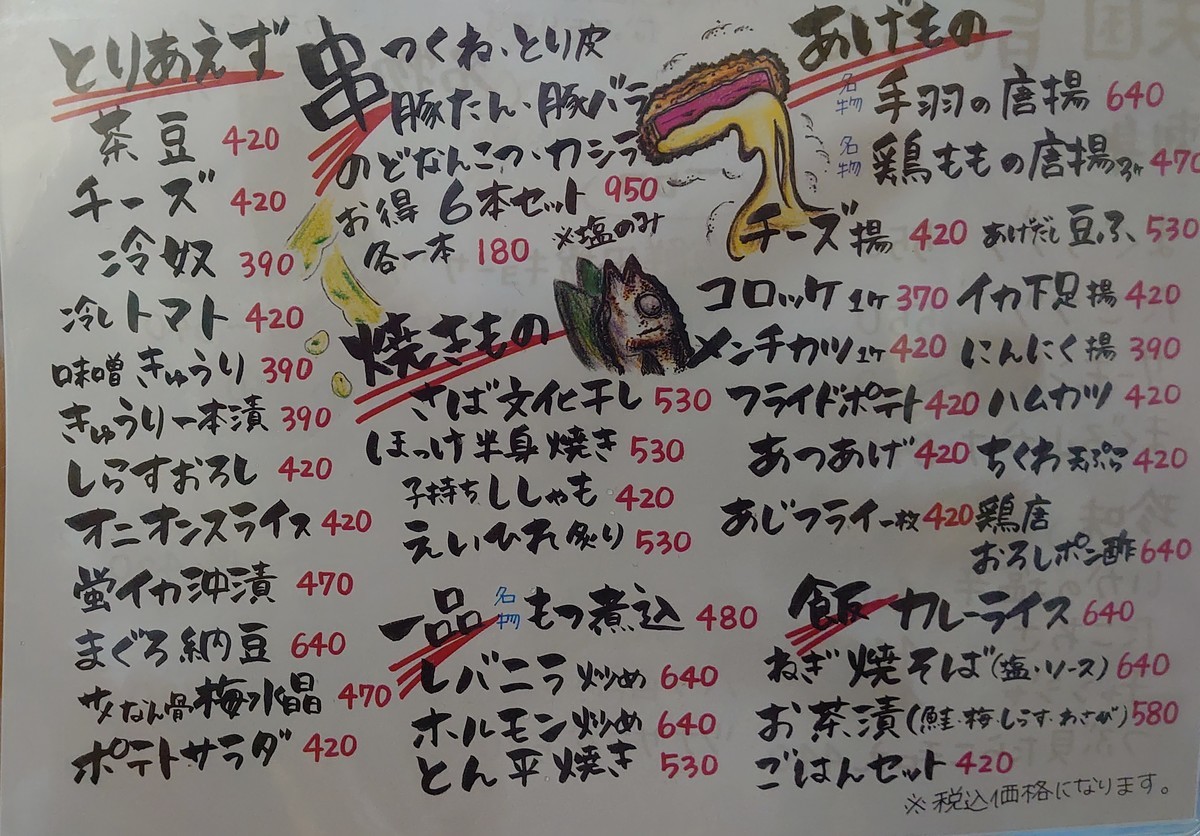 とりあえず
茶豆 420
チーズ 420
冷奴 390
冷しトマト 420
味噌きゅうり 390
きゅうり一本漬 390
しらすおろし 420
オニオンスライス 420
蛍イカ沖漬 470
まぐろ納豆 640
サメなん骨梅水晶 470
ポテトサラダ 420
串 つくね、とり皮
豚たん、豚バラ
のどなんこつ、カシラ
お得 6本セット 950
各一本 180 ※塩のみ
焼きもの
さば文化干し 530
ほっけ半身焼き 530
子持ちししゃも 420
えいひれ炙り 530
一品
名物 もつ煮込 480
レバニラ炒め 640
ホルモン炒め 640
とん平焼き 530
あげもの
名物 手羽の唐揚 640
名物 鶏ももの唐揚3ヶ 470
チーズ揚 420 あげだし豆ふ 530
コロッケ1ヶ 370 イカ下足揚 420
メンチカツ1ヶ 420 にんにく揚 390
フライドポテト 420 ハムカツ 420
あつあげ 420 ちくわ天ぷら 420
あじフライ一枚 420 鶏唐
おろしポン酢 640
飯 カレーライス 640
ねぎ焼そば(塩・ソース) 640
お茶漬(鮭・梅・しらす・わさび) 580
ごはんセット 420
※税込価格になります。